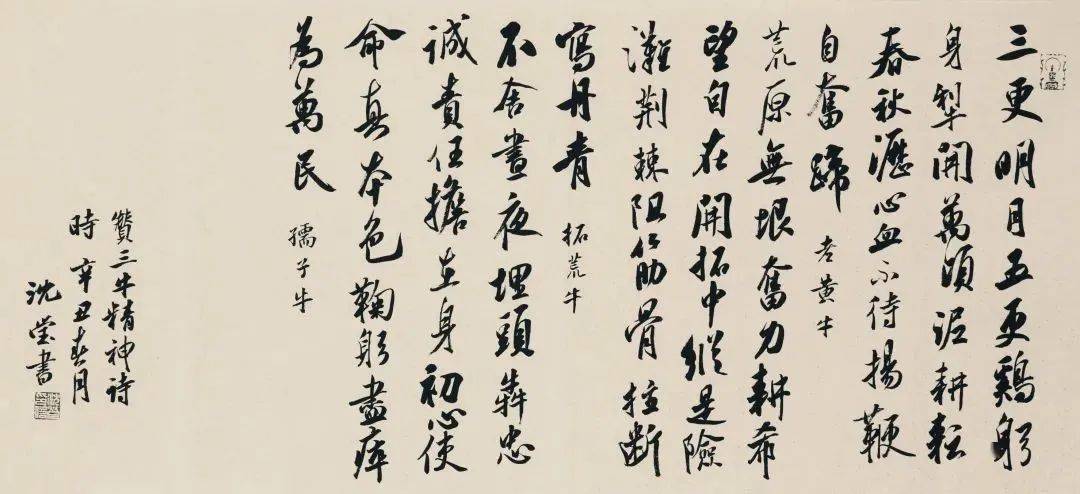 三更明月五更鷄躬
身犁開萬頃泥耕耘
春秋瀝心血不待揚鞭
自奮蹄 老黄牛
荒原無垠奮力耕希
望自在開拓中縱是險
灘荆棘阻筋骨拉断
寫丹青 拓荒牛
不舍晝夜埋頭忠
誠責任擔在身初心使
命真本色鞠躬盡瘁
為萬民 孺子牛
贊三牛精神詩
時辛丑春月
沈莹書